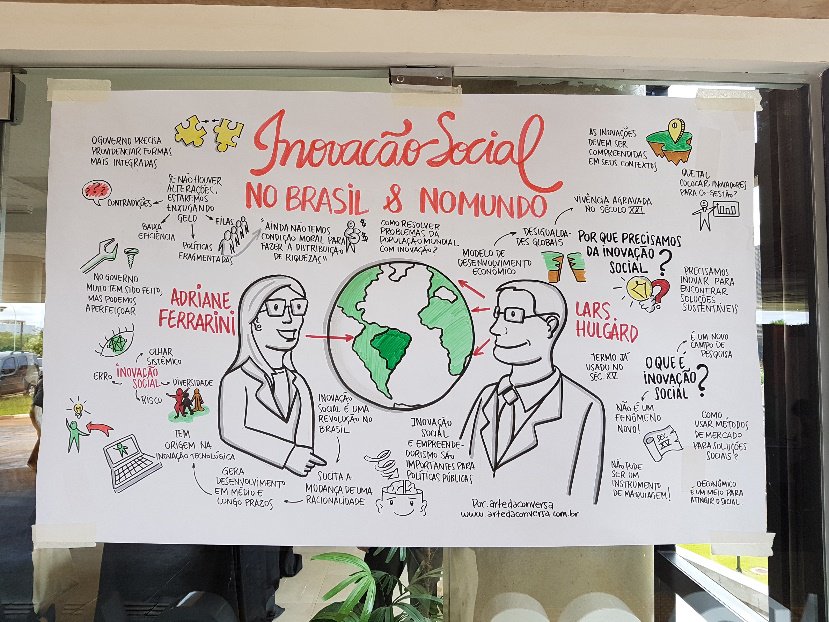 Inovação Social
NO BRASIL & NO MUNDO
O GOVERNO PRECISA
PROVIDENCIAR FORMAS
MAIS INTEGRADAS
CONTRADIÇÕES
SE NÃO HOUVER
ALTERAÇÕES,
ESTAREMOS
ENXUGANDO
GELO
FILAS
BAIXA
EFICIÊNCIA
POLÍTICAS
FRAGMENTADAS
"AINDA NÃO TEMOS
CONDIÇÃO MORAL PARA
FAZER A DISTRIBUIÇÃO
DE RIQUEZAS"
NO GOVERNO
MUITO TEM SIDO FEITO,
MAS PODEMOS
APERFEIÇOAR
ADRIANE
FERRARINI
OLHAR
SISTÊMICO
ERRO
INOVAÇÃO
SOCIAL
DIVERSIDADE
RISCO
TEM
ORIGEM NA
INOVAÇÃO TECNOLÓGICA
GERA
DESENVOLVIMENTO
EM MÉDIO E
LONGO PRAZOS
SUCITA A
MUDANÇA DE UMA
RACIONALIDADE
INOVAÇÃO
SOCIAL É UMA
REVOLUÇÃO NO
BRASIL
COMO RESOLVER
PROBLEMAS DA
POPULAÇÃO MUNDIAL
COM INOVAÇÃO?
MODELO DE
DESENVOLVIMENTO
ECONÔMICO
DESIGUALDA-
DES GLOBAIS
VIVÊNCIA AGRAVADA
NO SÉCULO XXI
AS INOVAÇÕES
DEVEM SER
COMPREENDIDAS
EM SEUS CONTEXTOS
QUE TAL
COLOCAR INOVADORES
PARA CO-GESTÃO?
POR QUE PRECISAMOS
DA INOVAÇÃO
SOCIAL?
PRECISAMOS
INOVAR PARA
ENCONTRAR
SOLUÇÕES
SUSTENTÁVEIS
LARS
HULGÄRD
TERMO JÁ
USADO NO
SÉC. XIX
O QUE É
INOVAÇÃO
SOCIAL?
É UM NOVO
CAMPO DE
PESQUISA
NÃO É UM
FENÔMENO
NOVO!
COMO
USAR MÉTODOS
DE MERCADO
PARA SOLUÇÕES
SOCIAIS?
NÃO PODE
SER UM
INSTRUMENTO
DE MAQUIAGEM!
O ECONÔMICO
É UM MEIO PARA
ATINGIR O SOCIAL
INOVAÇÃO
SOCIAL
E EMPREENDE-
DORISMO SÃO
IMPORTANTES PARA
POLÍTICAS PÚBLICAS
Por: artedaconversa
www.artedaconversa.com.br